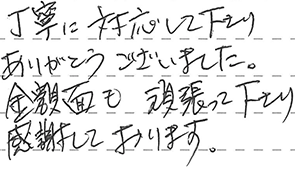 丁寧に対応して下さり
ありがとうございました。
金額面も 頑張って下さり
感謝しております。